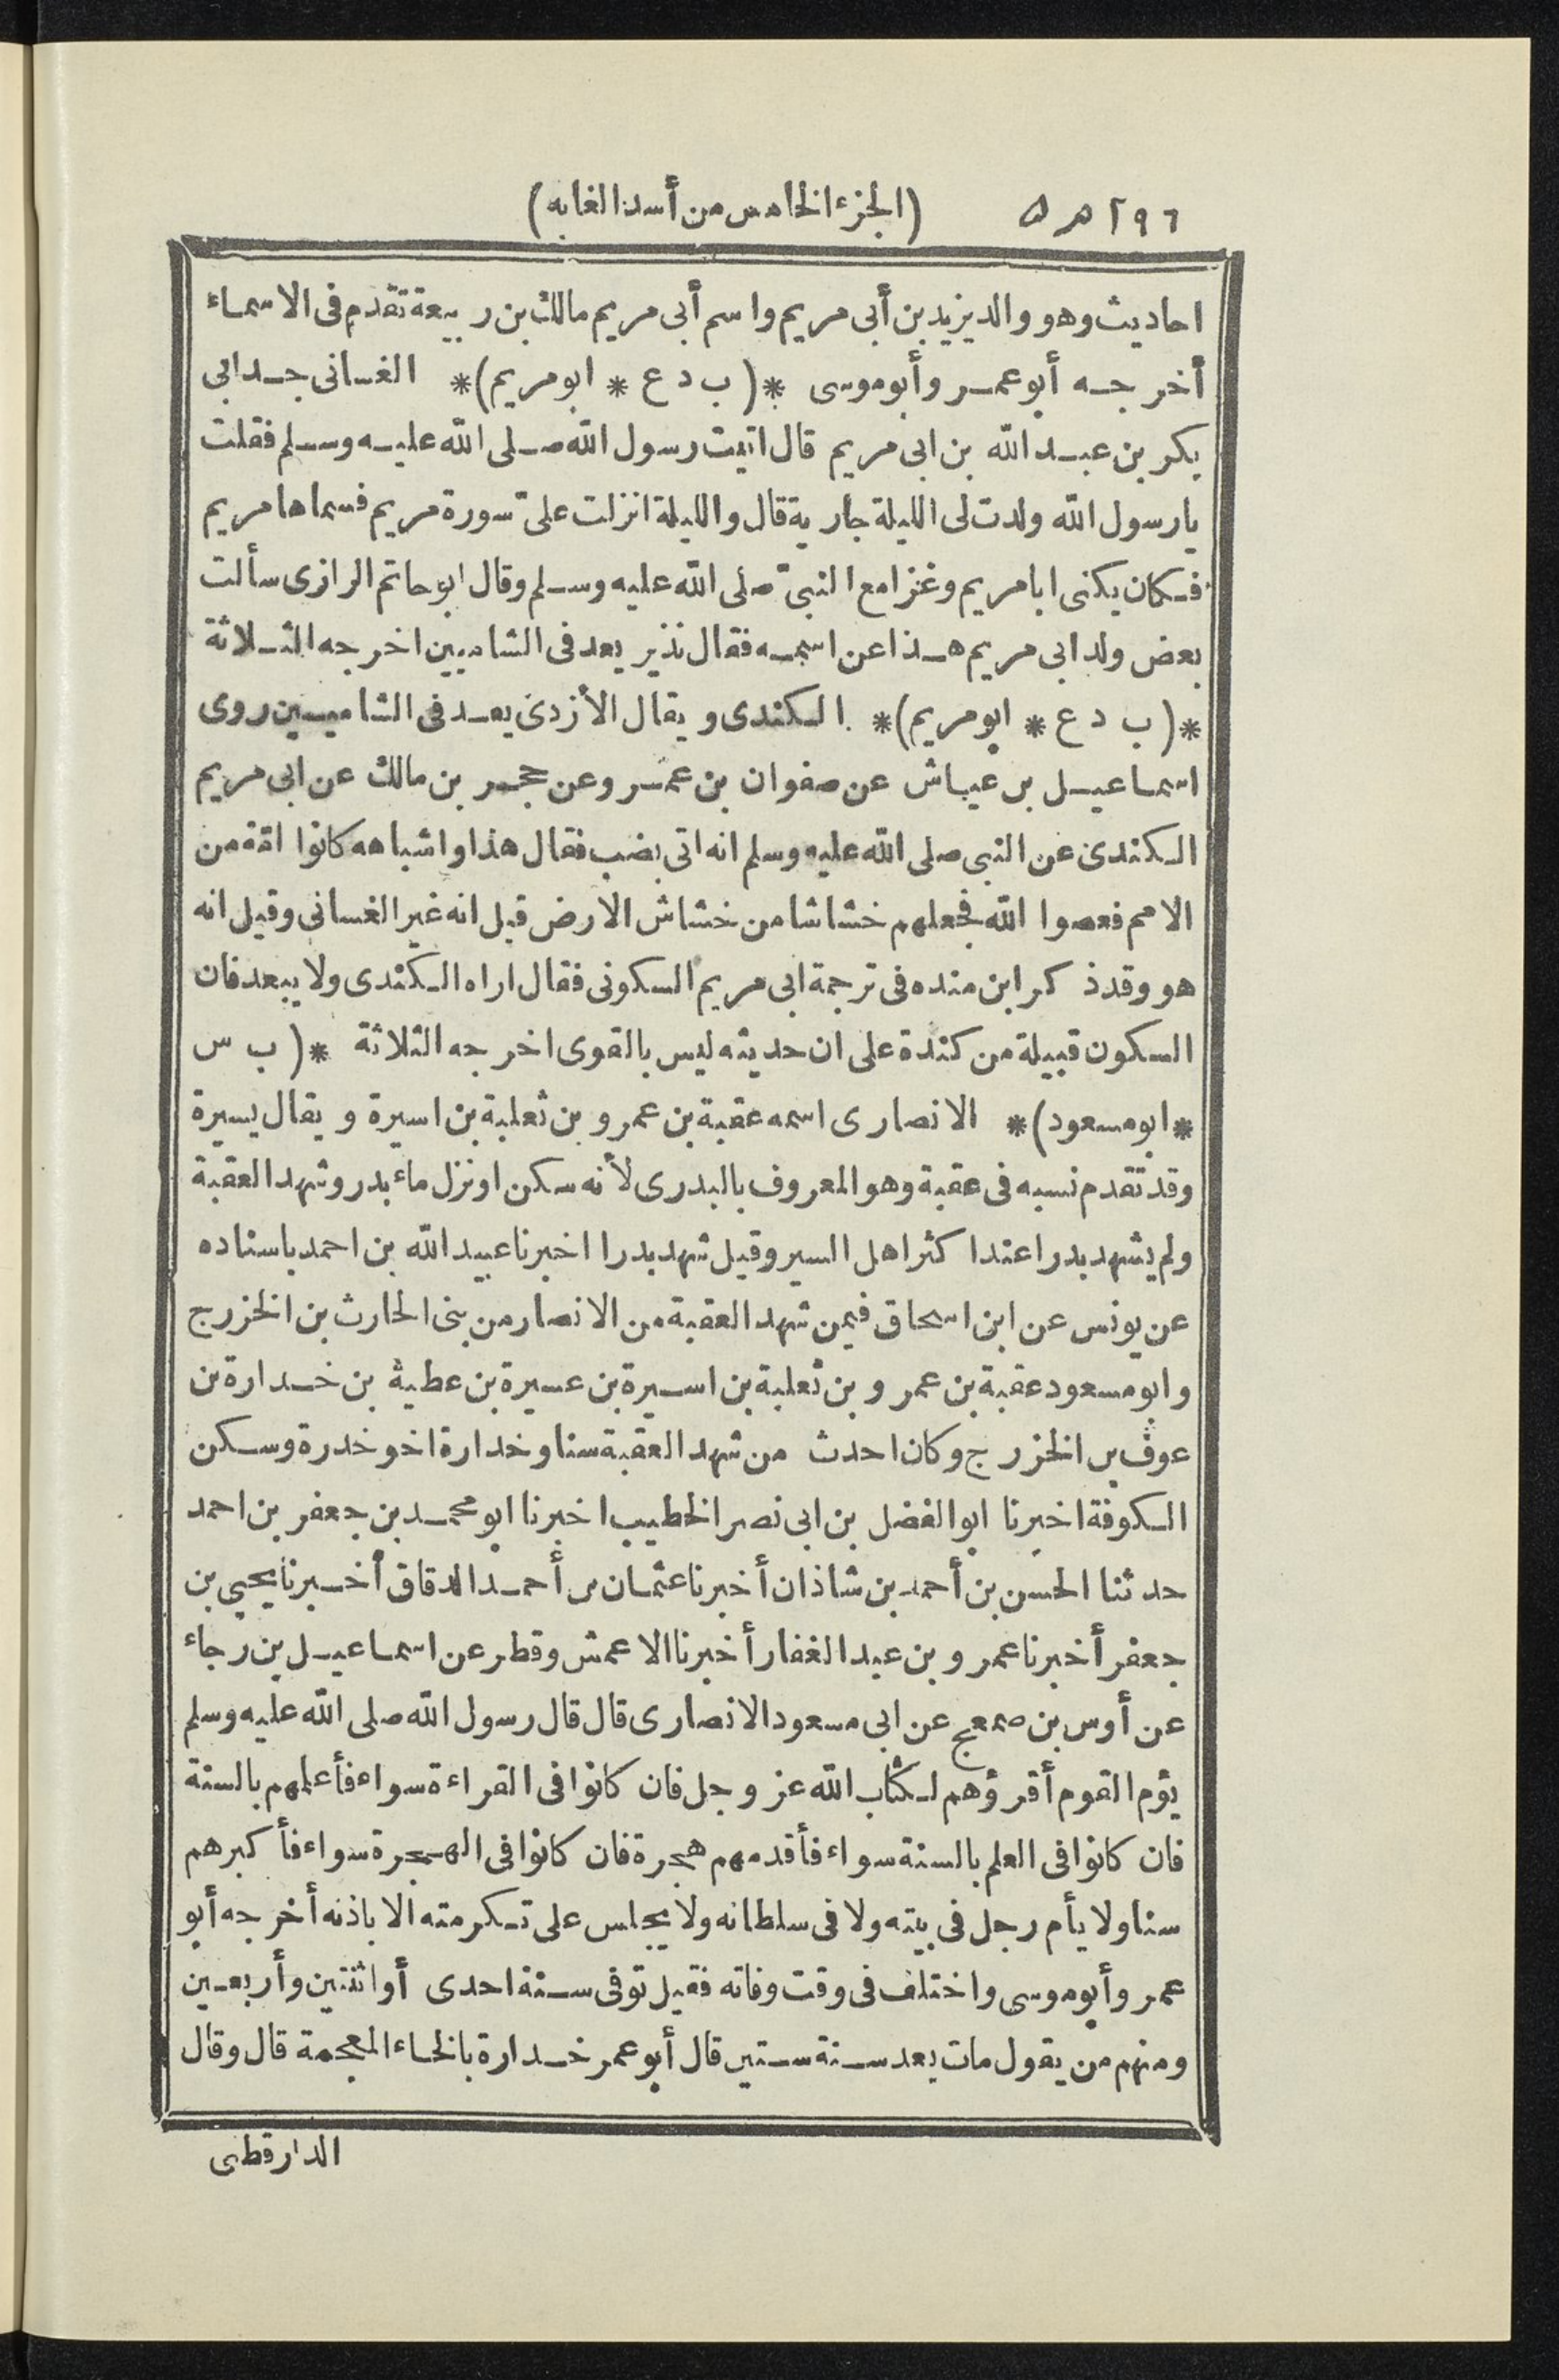 ٢٩٦ ه ٥ (الجزء الخامس من أسد الغابه)
احاديث وهو والد يزيد بن أبى مريم واسم أبى مريم مالك بن ربيعة تقدم فى الاسماء
أخرجه أبو عمر وأبو موسى *(ب د ع * ابو مريم)* الغسانى جد ابى
بكر بن عبد الله بن ابى مريم قال اتيت رسول الله صلى الله عليه وسلم فقلت
يا رسول الله ولدت لى الليلة جارية قال والليلة انزلت علىّ سورة مريم فسماها مريم
فكان يكنى ابا مريم وغزا مع النبىّ صلى الله عليه وسلم وقال ابو حاتم الرازى سألت
بعض ولد ابى مريم هذا عن اسمه فقال نذير يعد فى الشاميين اخرجه الثلاثة
*(ب د ع * ابو مريم)* الكندى ويقال الأزدى يعد فى الشاميين روى
اسماعيل بن عياش عن صفوان بن عمر وعن حجر بن مالك عن ابى مريم
الكندى عن النبى صلى الله عليه وسلم انه اتى بضب فقال هذا واشباهه كانوا امّة من
الامم فعصوا الله فجعلهم خشاشا من خشاش الارض قيل انه غير الغسانى وقيل انه
هو وقد ذكر ابن منده فى ترجمة ابى مريم السكونى فقال اراه الكندى ولا يبعد فان
السكون قبيلة من كندة على ان حديثه ليس بالقوى اخرجه الثلاثة *(ب س
*ابو مسعود)* الانصارى اسمه عقبة بن عمرو بن ثعلبة بن اسيرة ويقال يسيرة
وقد تقدم نسبه فى عقبة وهو المعروف بالبدرى لأنه سكن او نزل ماء بدر وشهد العقبة
ولم يشهد بدرا عند اكثر اهل السير وقيل شهد بدرا اخبرنا عبيد الله بن احمد باسناده
عن يونس عن ابن اسحاق فيمن شهد العقبة من الانصار من بنى الحارث بن الخزرج
وابو مسعود عقبة بن عمرو بن ثعلبة بن اسيرة بن عسيرة بن عطية بن خدارة بن
عوف بن الخزرج وكان احدث من شهد العقبة سنا وخدارة اخو خدرة وسكن
الكوفة اخبرنا ابو الفضل بن ابى نصر الخطيب اخبرنا ابو محمد بن جعفر بن احمد
حدثنا الحسن بن أحمد بن شاذان أخبرنا عثمان بن أحمد الدقاق أخبرنا يحيى بن
جعفر أخبرنا عمرو بن عبد الغفار أخبرنا الاعمش وقطر عن اسماعيل بن رجاء
عن أوس بن ضمعج عن ابى مسعود الانصارى قال قال رسول الله صلى الله عليه وسلم
يؤم القوم أقرؤهم لكتاب الله عز وجل فان كانوا فى القراءة سواء فأعلمهم بالسنة
فان كانوا فى العلم بالسنة سواء فأقدمهم هجرة فان كانوا فى الهجرة سواء فأكبرهم
سنا ولا يأم رجل فى بيته ولا فى سلطانه ولا يجلس على تكرمته الا باذنه أخرجه أبو
عمر وأبو موسى واختلف فى وقت وفاته فقيل توفى سنة احدى أو اثنتين وأربعين
ومنهم من يقول مات بعد سنة ستين قال أبو عمر خدارة بالخاء المعجمة قال وقال
الدارقطنى